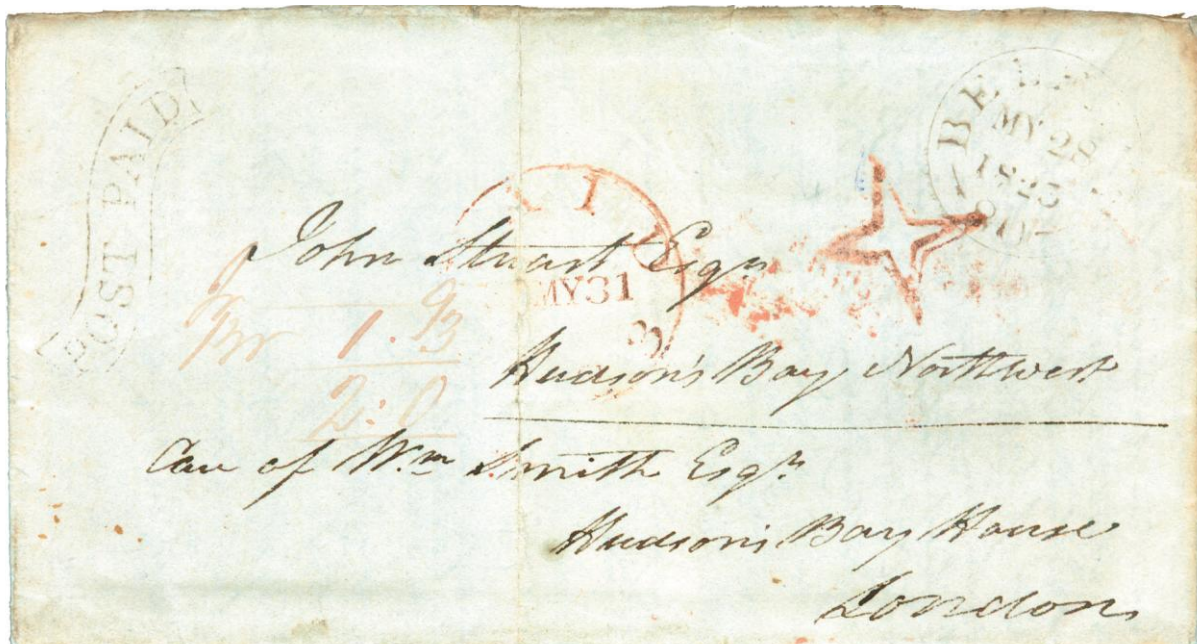 POST PAID
BEL
MY 28
1823
John Stuart Esqr
MY 31
Hudson's Bay Northwest
Care of Wm Smith Esqr
Hudson's Bay House
London